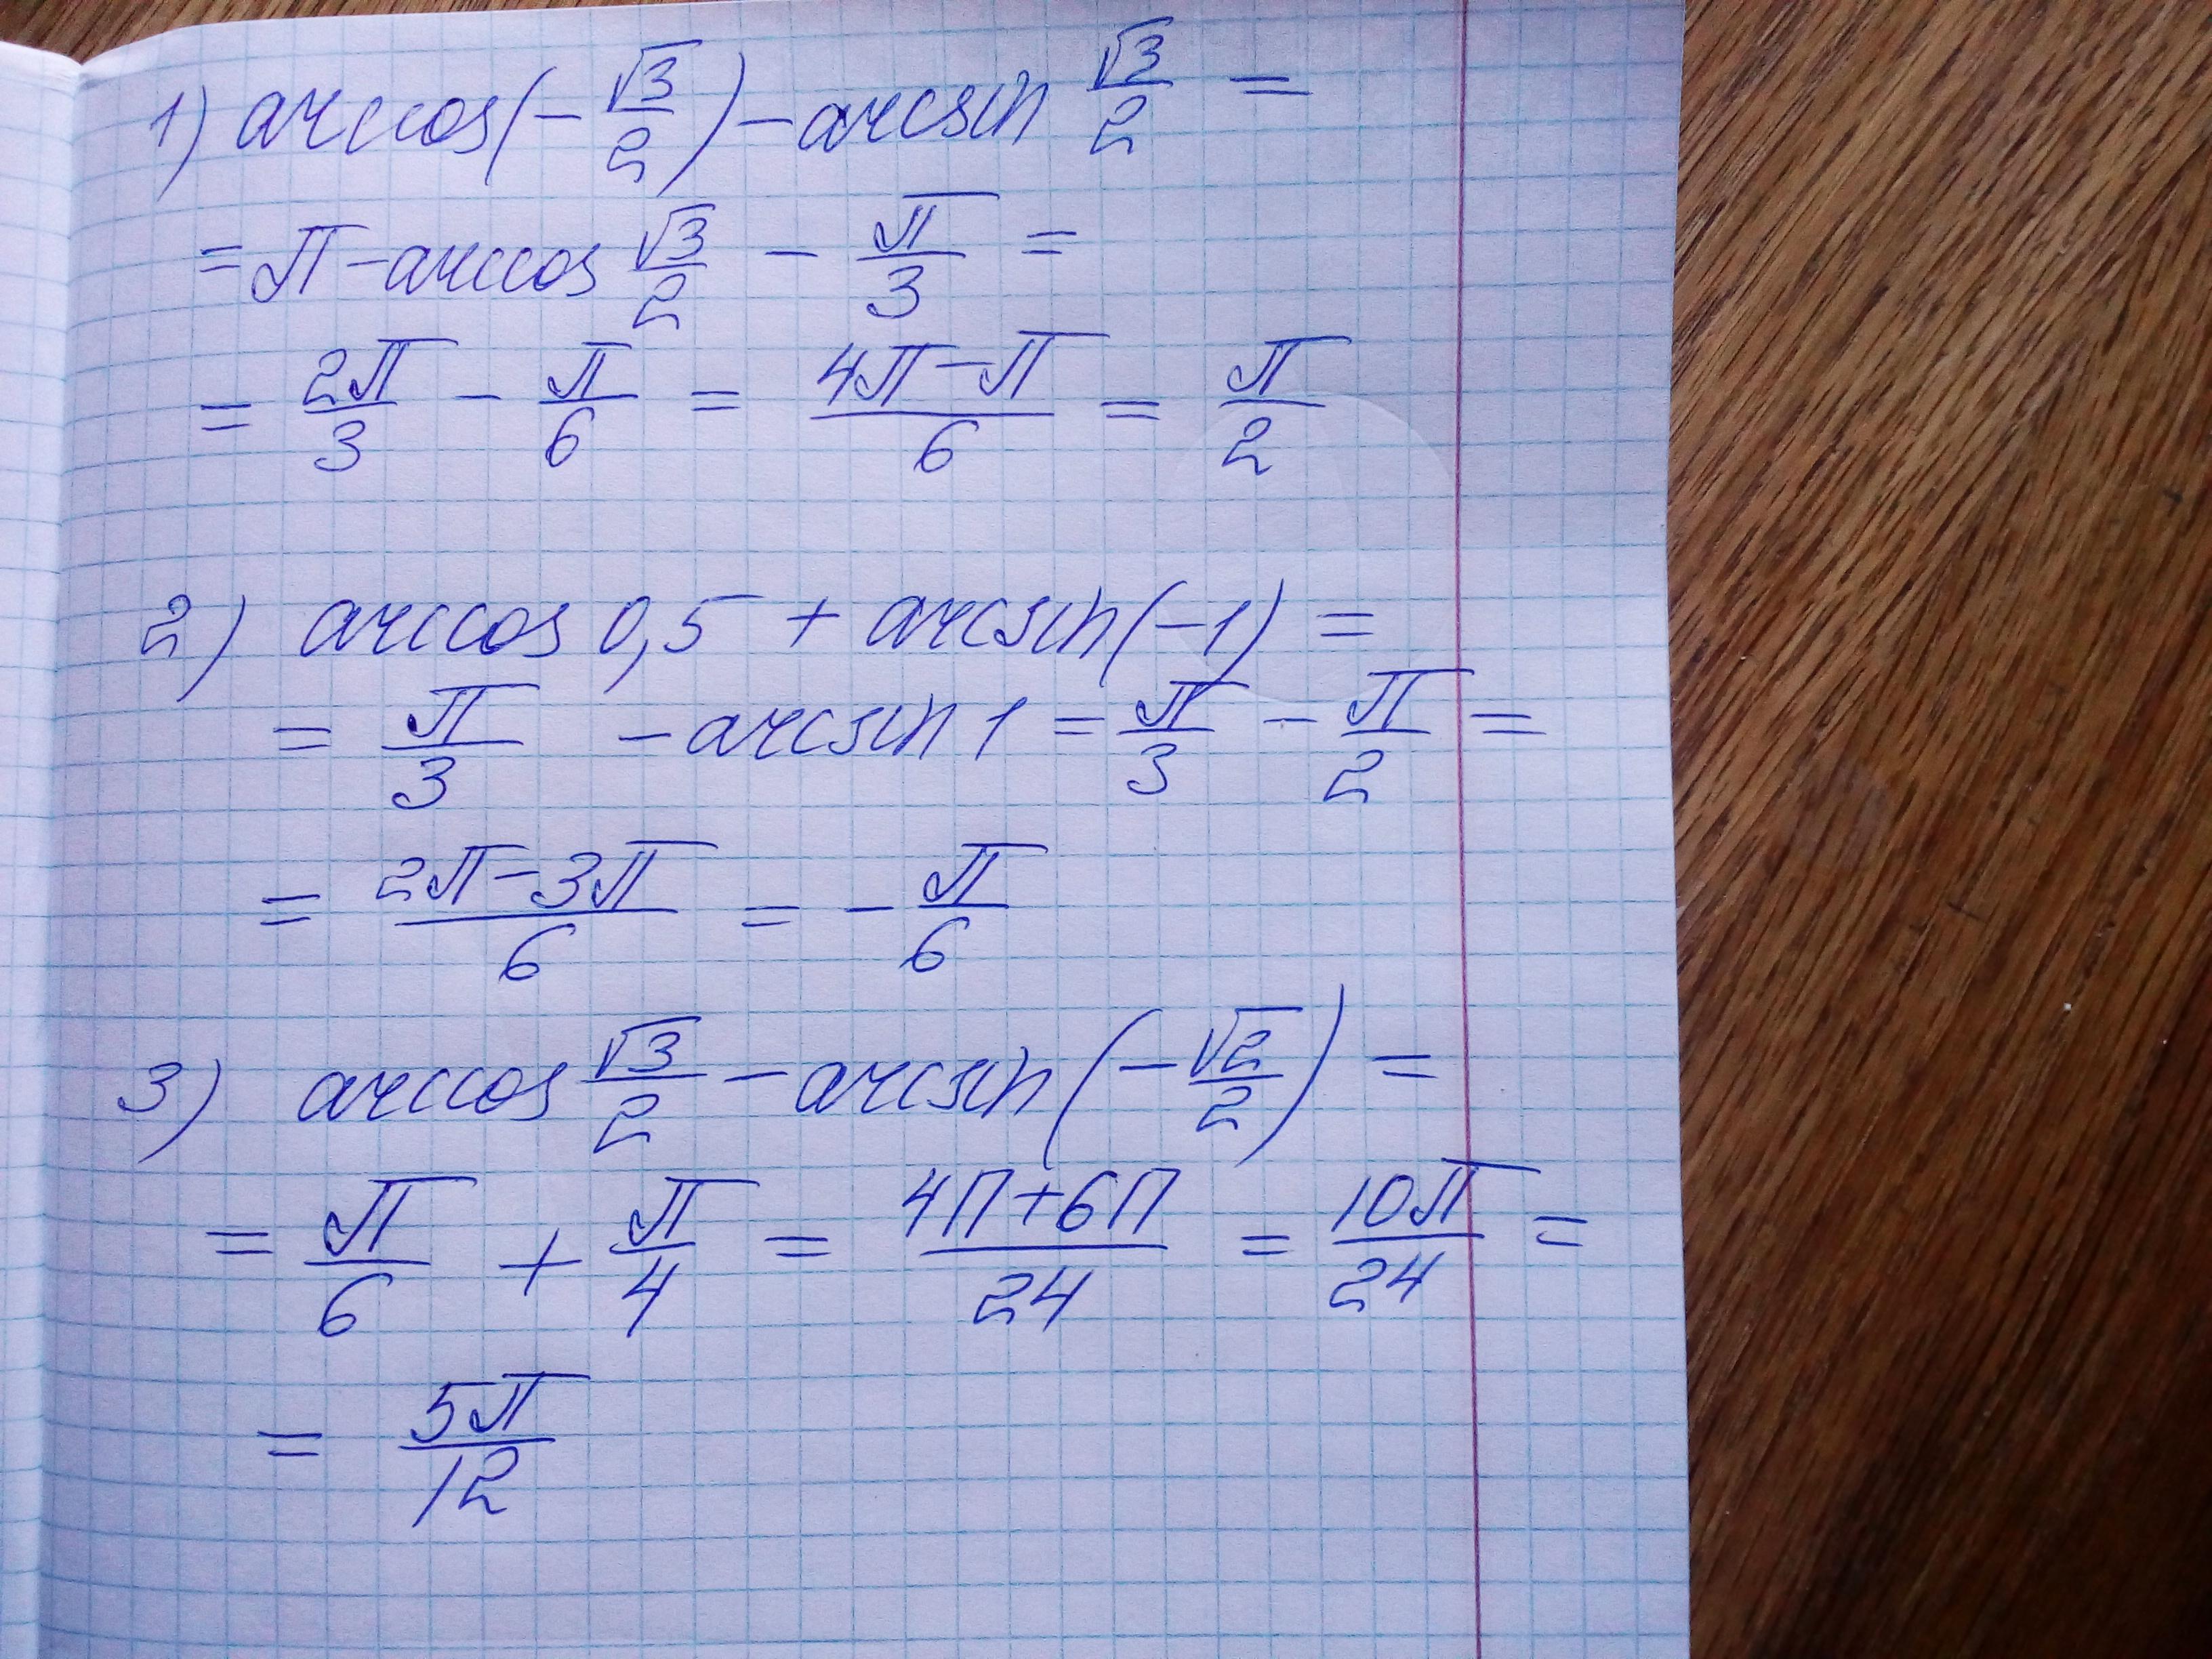 1) arccos(-√3/2) - arcsin √3/2 =
= π - arccos √3/2 - π/3 =
= 2π/3 - π/6 = 4π-π/6 = π/2
2) arccos 0,5 + arcsin(-1) =
= π/3 - arcsin 1 = π/3 - π/2 =
= 2π-3π/6 = - π/6
3) arccos √3/2 - arcsin(-√2/2) =
= π/6 + π/4 = 4π+6π/24 = 10π/24 =
= 5π/12